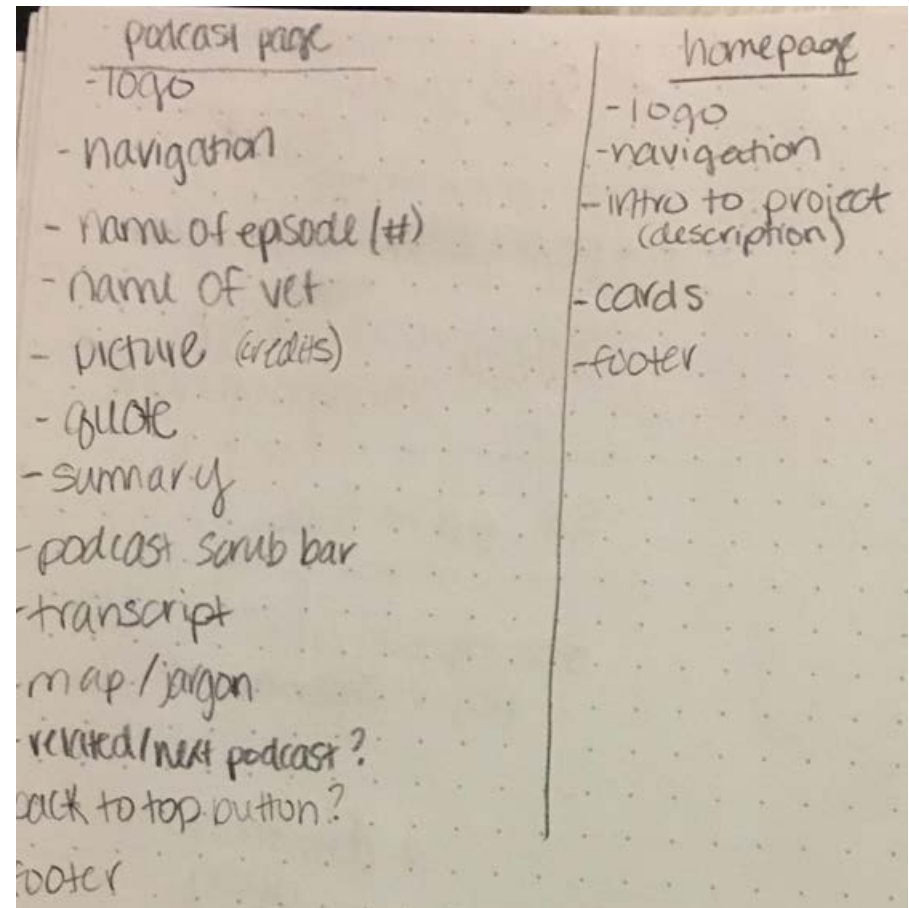 podcast page
- logo
- navigation
- name of epsode (#)
- name of vet
- picture (credits)
- quote
- summary
- podcast scrub bar
- transcript
- map/jargon
- related/next podcast?
back to top button?
footer
homepage
- logo
- navigation
- intro to project
(description)
- cards
- footer